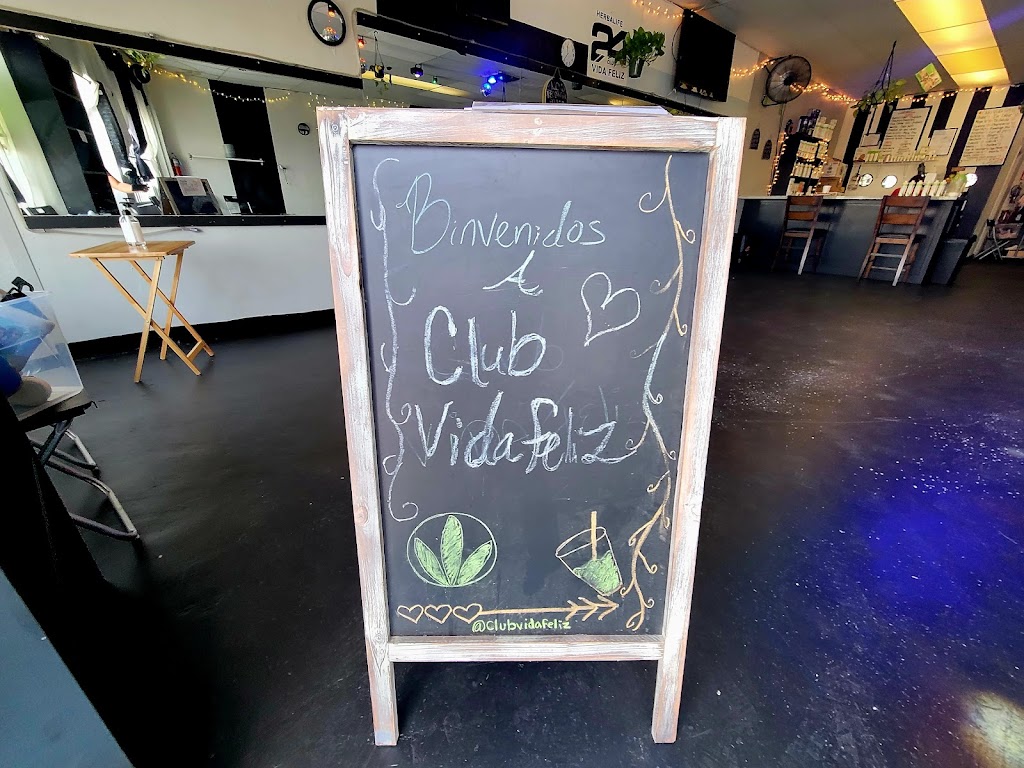 HERBALIFE
24
VIDA FELIZ
Binvenidos
A
Club
Vida feliz
@Clubvidafeliz